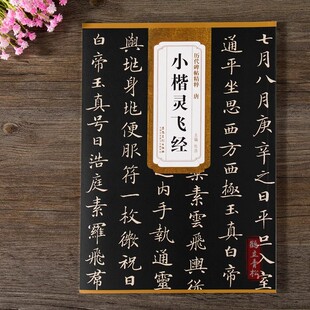 历代碑帖精粹 唐
小楷灵飞经
七月八月庚辛之日平旦入室
通平坐思西方西極玉真白帝
柰素雲飛輿從
內手執通靈
與地身地便服符一枚微祝日
白帝玉真号日浩庭素羅飛羣